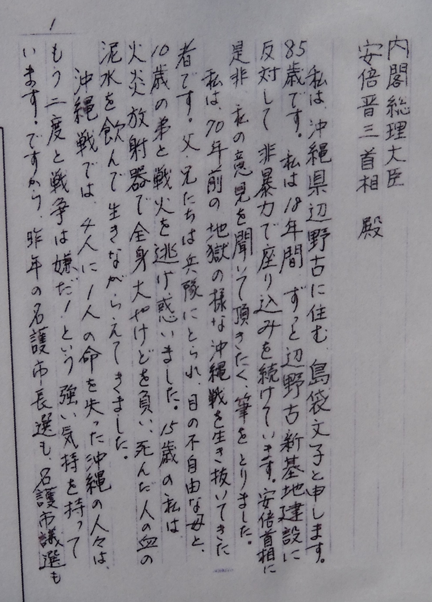 1
内閣総理大臣
安倍晋三首相 殿
私は、沖縄県辺野古に住む、島袋文子と申します。
85歳です。私は18年間 ずっと辺野古新基地建設に
反対して 非暴力で座り込みを続けています。安倍首相に
是非 私の意見を聞いて頂きたく、筆をとりました。
私は、70年前の 地獄の様な沖縄戦を生き抜いてきた
者です。父、兄たちは兵隊にとられ、目の不自由な母と、
10歳の弟と戦火を逃げ惑いました。15歳の私は
火炎放射器で全身大やけどを負い、死んだ人の血の
泥水を飲んで生きながらえてきました。
沖縄戦では、4人に1人の命を失った沖縄の人々は、
もう二度と戦争は嫌だ!という 強い気持を持って
います!ですから、昨年の名護市長選も、名護市議選も